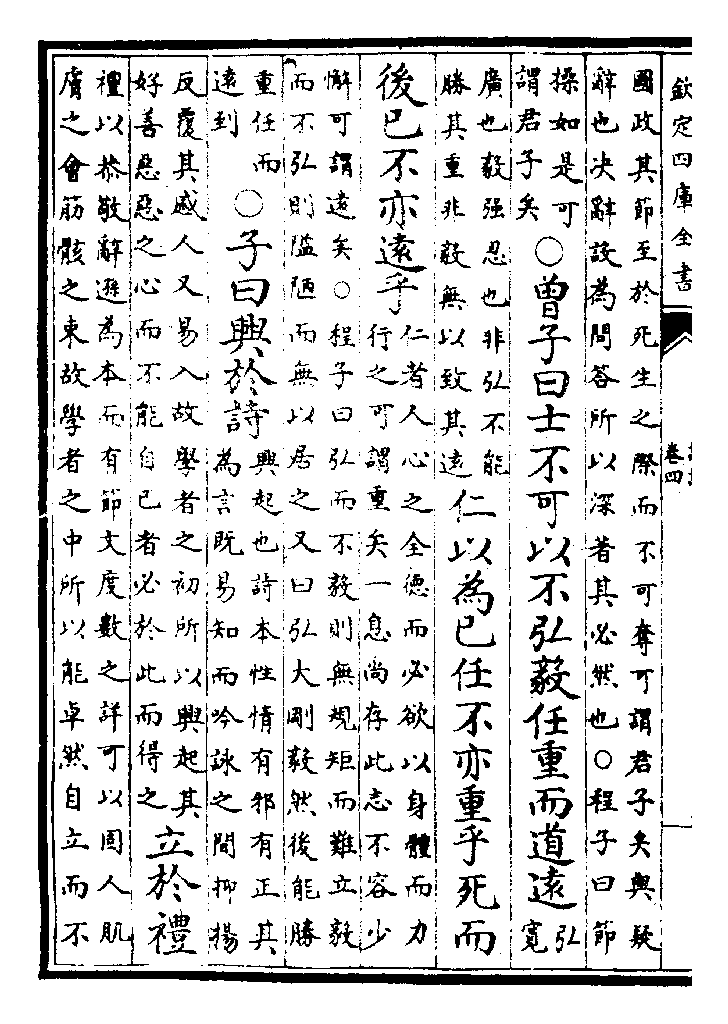 欽定四庫全書
卷四
國政其節至於死生之際而不可奪可謂君子矣與疑
辭也决辭設為問答所以深著其必然也○程子曰節
操如是可
謂君子矣
○曾子曰士不可以不弘毅任重而道遠
弘
寛
廣也毅强忍也非弘不能
勝其重非毅無以致其遠
仁以為已任不亦重乎死而
後已不亦遠乎
仁者人心之全德而必欲以身體而力
行之可謂重矣一息尚存此志不容少
懈可謂遠矣○程子曰弘而不毅則無規矩而難立毅
而不弘則隘陋而無以居之又曰弘大剛毅然後能勝
重任而
遠到
○子曰興於詩
興起也詩本性情有邪有正其
為言既易知而吟詠之間抑揚
反覆其感人又易入故學者之初所以興起其
好善惡惡之心而不能自已者必於此而得之
立於禮
禮以恭敬辭遜為本而有節文度數之詳可以固人肌
膚之會筋骸之束故學者之中所以能卓然自立而不